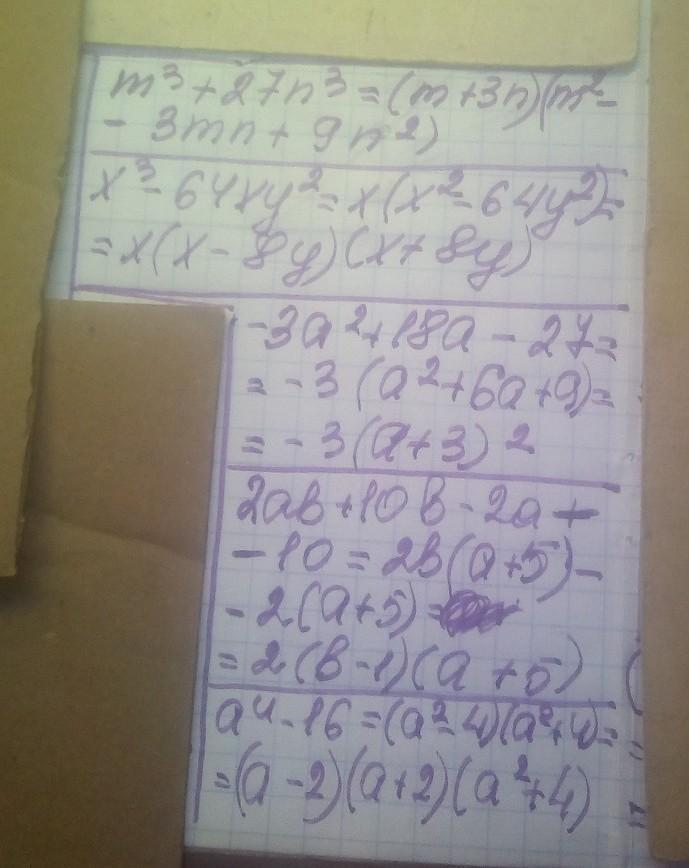 m³ + 27n³ = (m + 3n)(m² -
- 3mn + 9n²)
x³ - 64xy² = x(x² - 64y²) =
= x(x - 8y)(x + 8y)
-3a² + 18a - 27 =
= -3(a² + 6a + 9) =
= -3(a + 3)²
2ab + 10b - 2a -
- 10 = 2b(a + 5) -
- 2(a + 5) =
= 2(b - 1)(a + 5)
a⁴ - 16 = (a² - 4)(a² + 4) =
= (a - 2)(a + 2)(a² + 4)